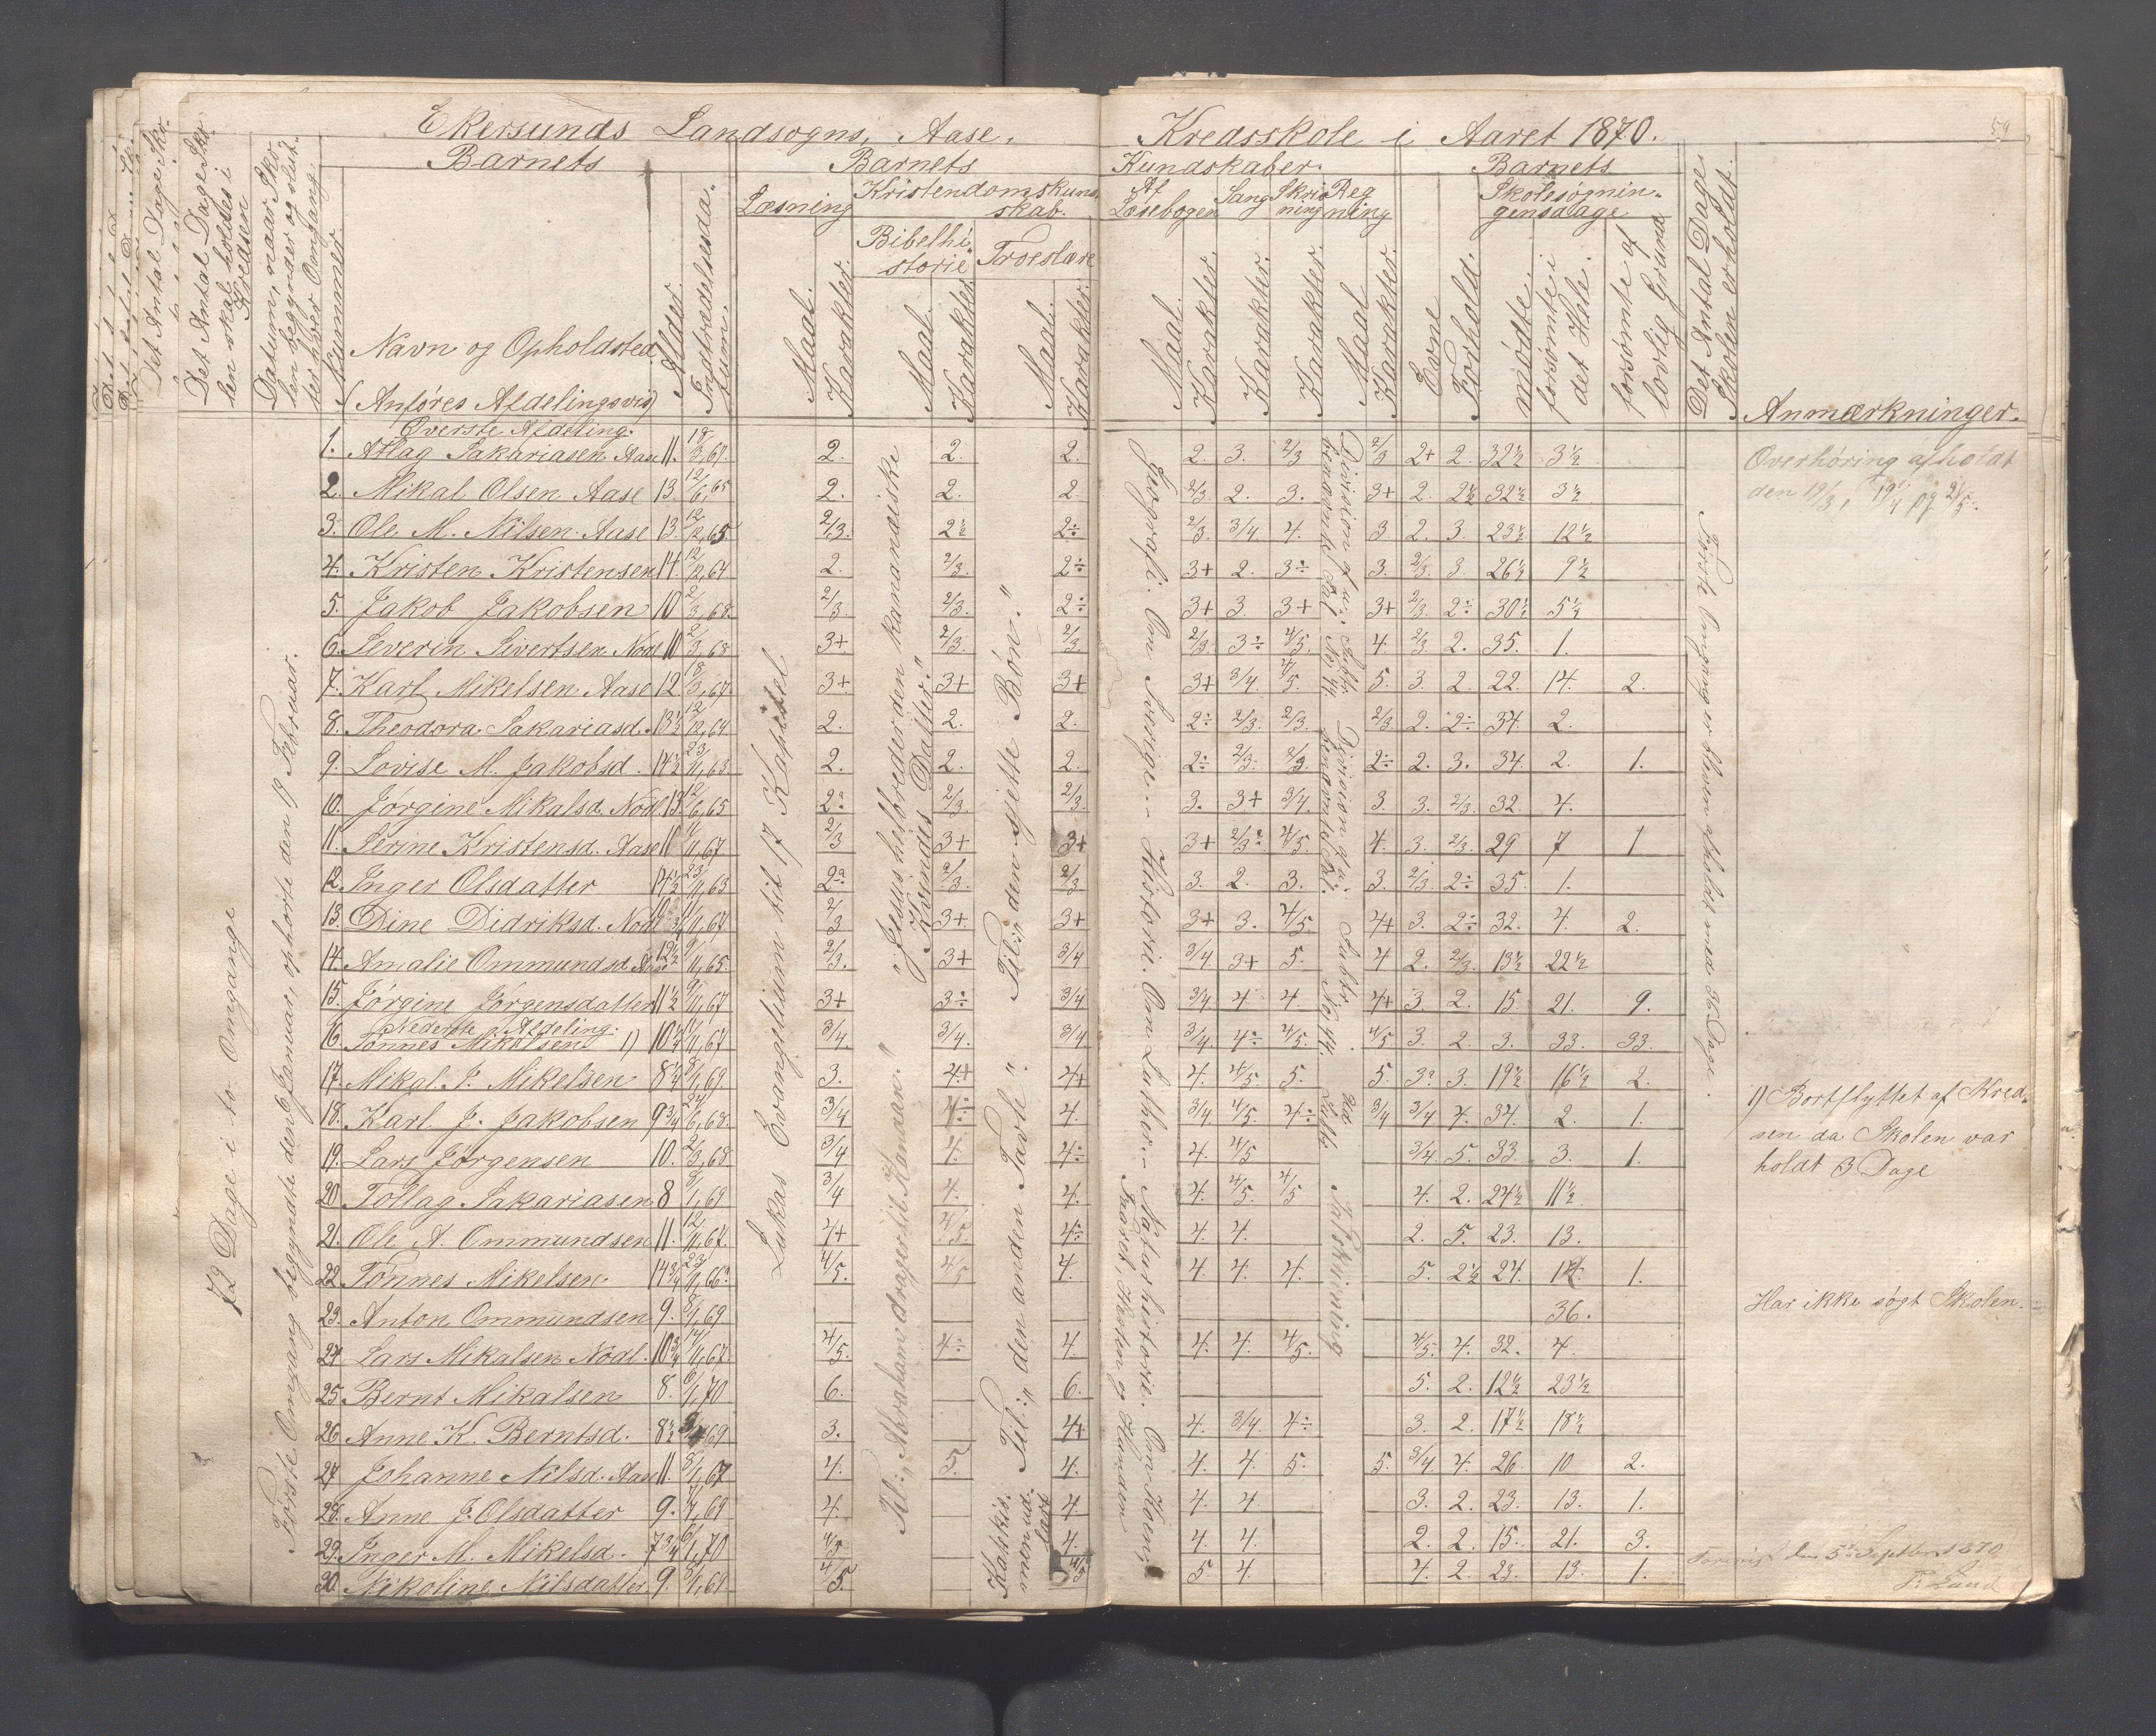 Ekersunds Landsogns, Aase, Kredsskole i Aaret 1870.
59
Det Antal Dage Sko-
Det Antal Dage Sko-
len skal holdes i
Kredsen
Datum, naar Sko-
len begynder og slut-
ter hver Omgang.
Barnets
Nummer.
Navn og Opholdsted
(Anføres Afdelingsvis)
Alder.
Indtrædelsesda-
tum.
Barnets Kundskaber.
Læsning
Maal.
Karakter.
Kristendomskund-
skab.
Bibelhi-
storie
Maal.
Karakter.
Troeslære
Maal.
Karakter.
Af
Læsebogen
Maal.
Karakter.
Sang
Karakter.
Skriv-
ning
Karakter.
Reg
ning
Maal
Karakter.
Barnets
Evne
Forhold.
Skolesøgnin-
gensdage
mødte
forsømte i
det Hele.
forsømte af
lovlig Grund
Det Antal Dage
Skolen er holdt.
Anmærkninger.
72 Dage i to Omgange
Første Omgang begyndte den 6 Januar, ophørte den 19 Februar.
Lukas Evangelium til 17 Kapittel
"Jesus helbreder den kananæiske
Kvindes Datter."
Til: "Abraham drager til Kanaan."
Til: "den sjette Bøn."
Til: "den anden Tavle."
Katekis-
men ud-
læst
Geografi: Om Sverige. - Historie: Om Luther. - Naturhistorie: Om Koen,
Faaret, Hesten og Hunden
Division
No 14.
Division
No 44.
Første Omgang er Skolen afholdt med 36 Dage.
Øverste Afdeling.
1. Atlag Sakariasen Aase 11. 18/3,67. 2. 2. 2. 2. 3. 2/3 2/3 2+ 2. 32½ 3½
2. Mikal Olsen Aase 13. 12/6,65 2. 2. 2. 2/3 2. 3. 3+ 2. 2½ 32½ 3½
3. Ole M. Nilsen Aase 13. 12/12,65. 2/3. 2½ 2÷ 2/3. 3/4 4. 3. 2. 3. 23½ 12½
4. Kristen Kristensen 14. 12/12,64 2. 2/3. 2÷ 3+ 2. 3÷ 3. 2/3. 3. 26½ 9½
5. Jakob Jakobsen 10 2/3,68. 2/3. 2/3. 2÷ 3+ 3. 3+ 3+ 2/3. 2÷ 30½ 5½
6. Severin Sivertsen Nodl 10 2/3,68 3+ 2/3. 2/3. 2/3. 3÷ 4/5. 4. 2/3 2. 35. 1.
7. Karl Mikelsen Aase 12 18/3,67. 3+ 3+ 3+ 3+ 3/4. 4/5. 5. 3. 2. 22. 14. 2.
8. Theodora Sakariasd. 13½ 12/12,64 2. 2. 2. 2÷ 2/3. 2/3. 2/3 2. 2÷ 34. 2.
9. Lovise M. Jakobsd. 14½ 23/11,63. 2. 2. 2. 2÷ 2/3. 2/3. 2÷ 2. 3. 34. 2. 1.
10. Jørgine Mikalsd. Nodl 13. 12/6,65 2÷ 2/3. 2/3. 3. 3+ 3/4. 3. 3. 2/3. 32. 4.
11. Serine Kristensd. Aase 11/11,67 2/3 3+ 3+ 3+ 2/3÷ 4/5. 4. 3. 2/3. 29 7 1
12. Inger Olsdatter 14½ 23/11,63 2÷ 2/3. 2/3 3. 2. 3. 3. 2/3. 2÷ 35. 1.
13. Dine Didriksd. Nodl 11/11,67 2/3 3+ 3+ 3+ 3. 4/5. 4+ 3. 2÷ 32. 4. 2.
14. Amalie Ommundsd. Aase 12½ 9/11,65. 2/3. 3+ 3/4 3/4. 3+ 5. 4 2. 2/3. 13½ 22½
15. Jørgine Jørgensdatter 11½ 9/11,67 3+ 3÷ 3/4 3/4. 4 4. 4+ 3. 2. 15. 21. 9.
Nederste Afdeling.
16. Tønnes Mikalsen 1) 10¼ 11/11,67 3/4. 3/4. 3/4 3/4. 4÷ 4/5. 4/5 3. 2. 3. 33. 33.
17. Mikal T. Mikelsen 8¼ 8/1,69. 3. 4+ 4+ 4. 4/5. 5. 5. 3÷ 3. 19½ 16½ 2.
18. Karl J. Jakobsen 9¾ 24/6,68. 3/4 4÷ 4. 3/4. 4/5 4÷ 3/4 3/4 4. 34. 2. 1.
19. Lars Jørgensen 10. 2/3,68 3/4 4. 4÷ 4. 4/5 3/4. 5. 33. 3. 1.
20. Tollag Sakariasen 8 8/1,69 3/4 4. 4. 4. 4/5. 4/5 4. 2. 24½ 11½
21. Ole A. Ommundsen 11. 12/11,67. 4+ 4/5. 4÷ 4. 4. 2. 5. 23. 13.
22. Tønnes Mikelsen 14¾ 23/11,66. 4/5. 4/5 4. 4. 4. 4. 5. 2½ 24. 12. 1.
23. Anton Ommundsen 9. 8/1,69 36.
24. Lars Mikalsen Nodl. 10¾ 11/11,67. 4/5. 4÷ 4. 4. 4. 4/5. 4/5. 4. 32. 4.
25. Bernt Mikalsen 8. 6/1,70 6. 6. 5. 2. 12½ 23½
26. Anne K. Berntsd. 8½ 69 3. 4+ 4. 3/4 4÷ 3. 2. 17½ 18½
27. Johanne Nilsd. Aase 11. 8/1,67 4. 5. 4. 4. 4. 5. 5. 3/4. 4. 26. 10 2.
28. Anne J. Olsdatter 9. 69 4. 4 4. 4 3. 2. 23. 13. 1.
29. Inger M. Mikelsd. 7¾ 6/1,70 4/5 4. 4. 4. 2. 2. 15. 21. 3.
30. Nikoline Nilsdatter 9. 8/1,69 4/5. 4/5 5. 4. 4. 2. 23. 13. 1.
Overhøring afholdt
den 19/3, 19/4 og 21/5.
1) Bortflyttet af Kred-
sen da Skolen var
holdt 3 Dage
Har ikke søgt Skolen.
den 5te Septbr 1870